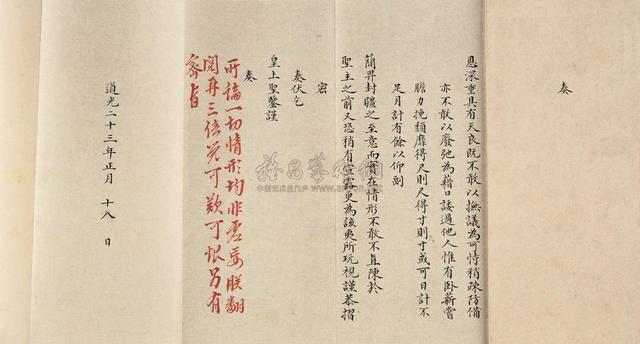 奏
恩深重具有天良既不敢以撫議為可恃稍疎防備
亦不敢以廢弛為藉口諉過他人惟有臥薪嘗
膽力挽頹靡得尺則尺得寸則寸或可日計不
足月計有餘以仰副
簡畀封疆之至意而實在情形不敢不直陳於
聖主之前又恐稍有宣露更為該夷所玩視謹恭摺
密
奏伏乞
皇上聖鑒謹
奏
所論一切情形均非虛妄朕翻
閱再三倍覺可歎可恨另有
密旨
道光二十三年正月十八日